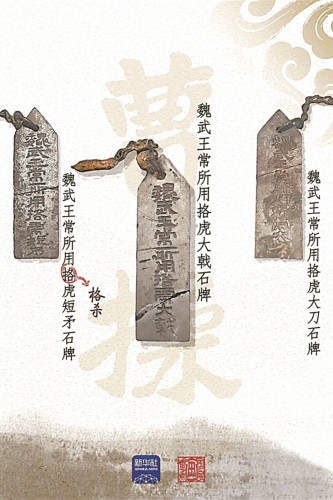 曹操
魏武王常所用挌虎短矛石牌
格杀
魏武王常所用挌虎大戟
魏武王常所用挌虎大戟石牌
魏武王常所用挌虎大刀石牌
新华社